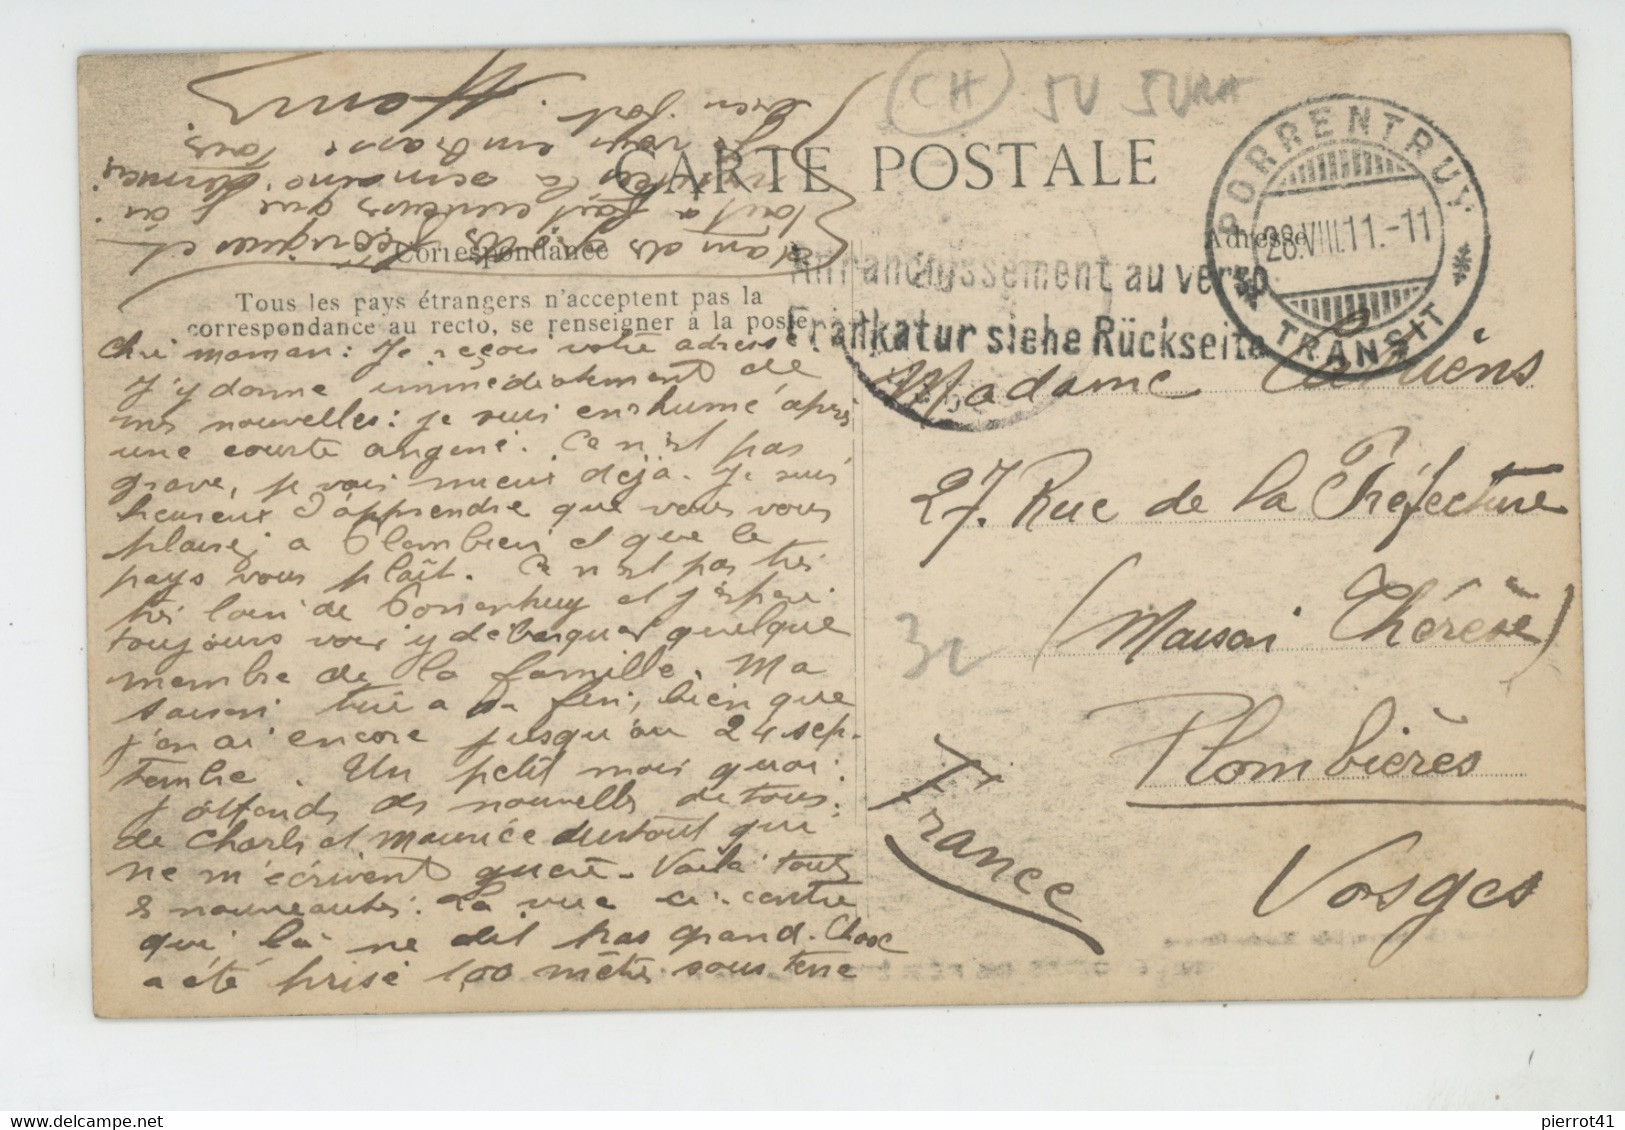 CH JU JURA
CARTE POSTALE
Correspondance
Adresse
Tous les pays étrangers n'acceptent pas la
correspondance au recto, se renseigner à la poste
PORRENTRUY
28.VIII.11.-11
TRANSIT
Affranchissement au verso
Frankatur siehe Rückseite
Madame
27. Rue de la Préfecture
(Maison Thérèse)
Plombières
Vosges
France
Chère maman : Je reçois votre adresse.
J'y donne immédiatement de
mes nouvelles : je suis enrhumé après
une courte angine. Ce n'est pas
grave, je vais mieux déjà. Je suis
heureux d'apprendre que vous vous
plaisez à Plombières et que le
pays vous plaît. Ce n'est pas très
très loin de Porrentruy et j'espère
toujours voir y débarquer quelque
membre de la famille. Ma
saison tire à sa fin, bien que
j'en ai encore jusqu'au 24 sep-
tembre. Un petit mois quoi.
J'attends des nouvelles de tous :
de Charles et Maurice surtout qui
ne m'écrivent guère. Voilà toutes
les nouveautés. La vue ci-contre
qui là ne dit pas grand chose
a été prise 100 mètres sous terre
dans des
tout à fait curieuses que j'ai
visitées la semaine dernière.
Je vous embrasse tous
bien fort.
32
pierrot41